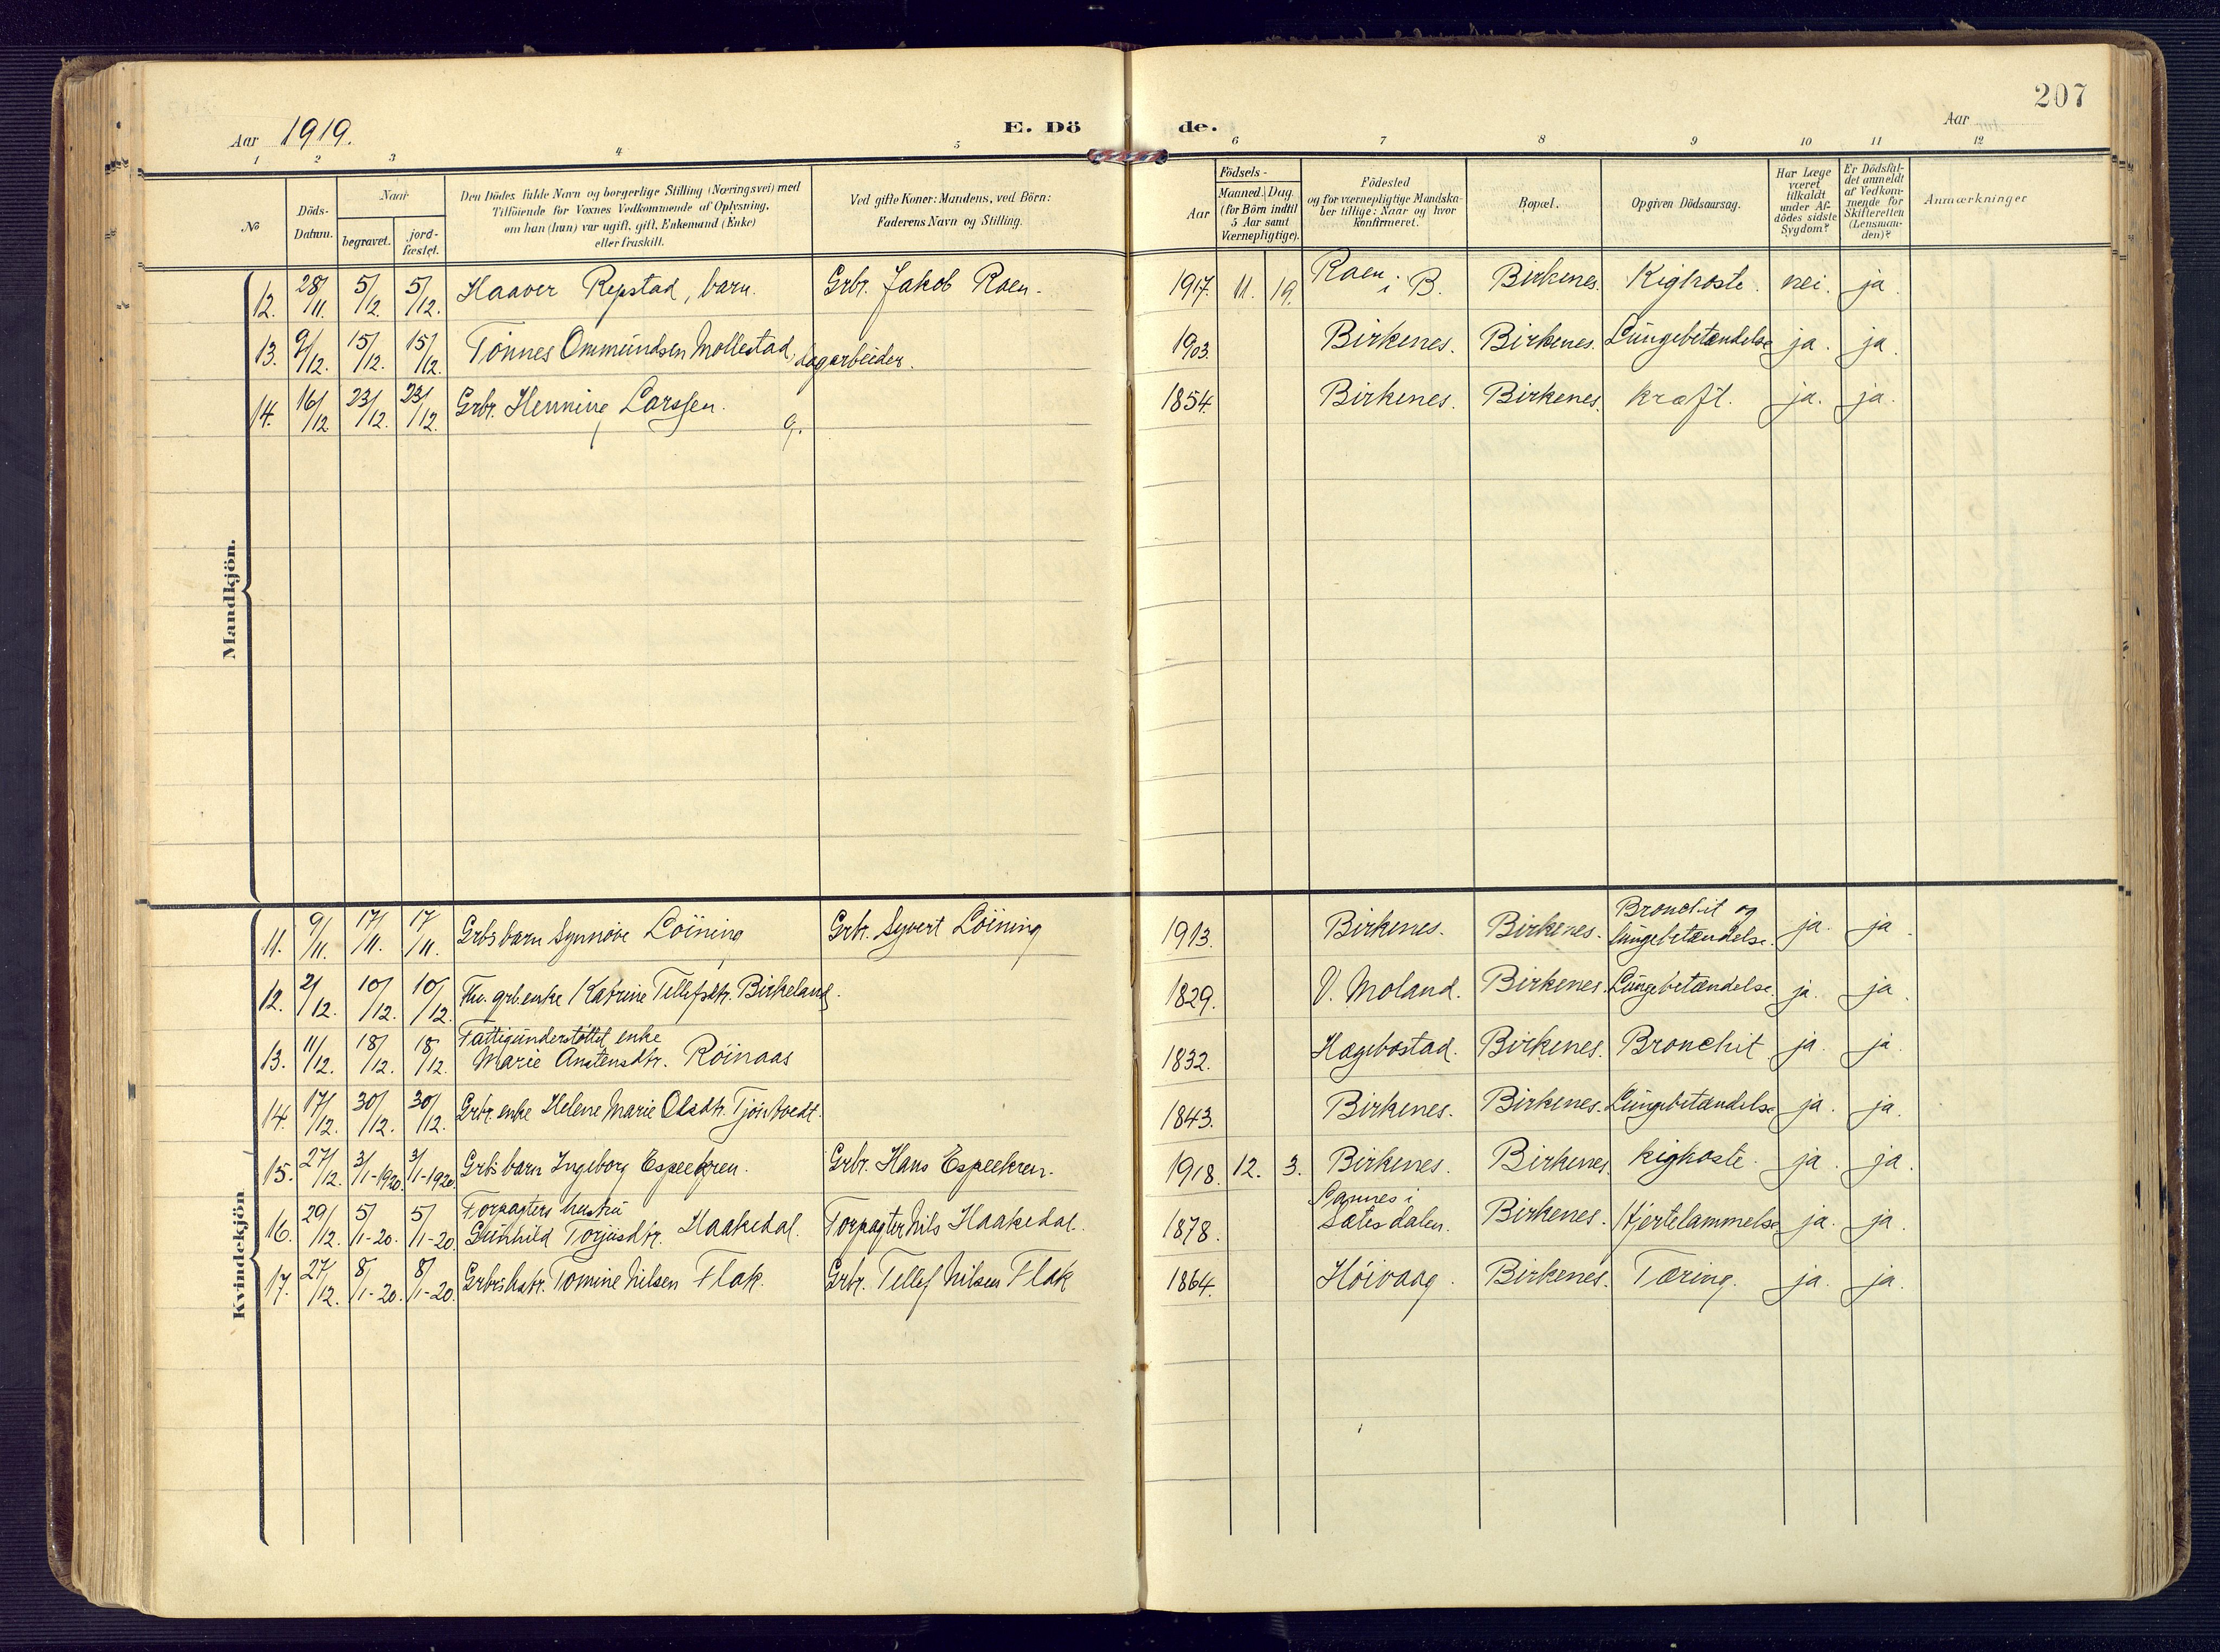 207
Aar 1919. E. Dö de. Aar
1 2 3 4 5 6 7 8 9 10 11 12
No
Döds-
Datum.
Naar
begravet.
jord-
fæstet.
Den Dödes fulde Navn og borgerlige Stilling (Næringsvei) med
Tilföiende for Voxnes Vedkommende af Oplysning,
om han (hun) var ugift, gift, Enkemand (Enke)
eller fraskilt.
Ved gifte Koner: Mandens, ved Börn:
Faderens Navn og Stilling.
Födsels-
Aar
Maaned. Dag.
(for Börn indtil
5 Aar samt
Værnepligtige).
Födested
og for værnepligtige Mandska-
ber tillige: Naar og hvor
konfirmeret.
Bopæl.
Opgiven Dödsaarsag.
Har Læge
været
tilkaldt
under Af-
dödes sidste
Sygdom?
Er Dödsfal-
det anmeldt
af Vedkom-
mende for
Skifteretten
(Lensman-
den)?
Anmærkninger
Mandkjön.
12. 28/11. 5/12. 5/12. Haaver Repstad, barn. Grbr. Jakob Raen. 1917. 11. 19. Raen i B. Birkenes. Kighoste. nei. ja.
13. 9/12. 15/12. 15/12. Tönnes Ommundsen Mollestad, dagarbeider. 1903. Birkenes. Birkenes. Lungebetændelse ja. ja.
14. 16/12 23/12. 23/12. Grbr. Henning Larssen. g. 1854. Birkenes. Birkenes. kræft. ja. ja.
Kvindekjön
11. 9/11. 17/11. 17/11. Grbs barn Synnöve Löining Grbr. Syvert Löining 1913. Birkenes. Birkenes. Bronchit og
lungebetændelse. ja. ja
12. 2/12. 10/12. 10/12. Fhv. grb.enke Katrine Tellefsdtr. Birkeland. 1829. V. Moland. Birkenes. Lungebetændelse. ja. ja.
13. 11/12. 18/12. 18/12. Fattigunderstöttet enke
Marie Anstensdtr. Röinaas 1832. Hægebostad. Birkenes. Bronchit ja. ja.
14. 17/12. 30/12. 30/12. Grbr. enke Helene Marie Olsdtr. Tjöntvedt. 1843. Birkenes. Birkenes. Lungebetændelse ja. ja.
15. 27/12. 3/1-1920. 3/1-1920. Grbs barn Ingeborg Espeekren. Grbr. Hans Espeekren. 1918. 12. 3. Birkenes. Birkenes. kighoste. ja. ja.
16. 29/12. 5/1-20. 5/1-20. Forpagters hustru
Gunhild Torjusdtr. Haakedal. Forpagter Nils Haakedal. 1878. Sætesdalen. Birkenes. Hjertelammelse ja. ja.
17. 27/12. 8/1-20. 8/1-20. Grbrs hstr. Tomine Nilsen Flak. Grbr. Tellef Nilsen Flak 1864. Höivaag. Birkenes. Tæring. ja. ja.